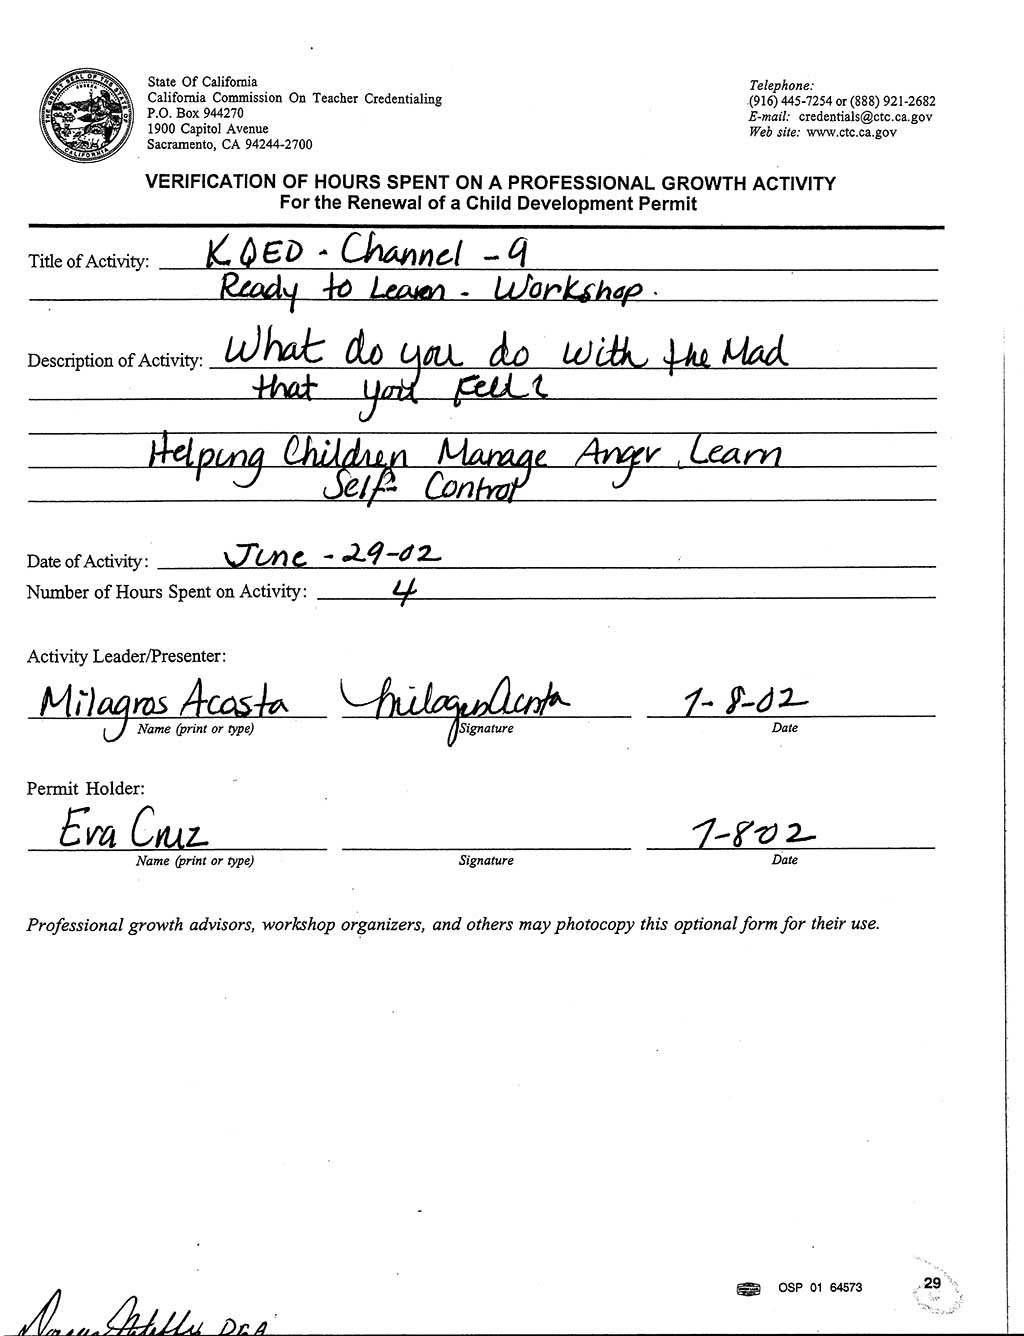 State Of California
California Commission On Teacher Credentialing
P.O. Box 944270
1900 Capitol Avenue
Sacramento, CA 94244-2700
Telephone:
(916) 445-7254 or (888) 921-2682
E-mail: credentials@ctc.ca.gov
Web site: www.ctc.ca.gov
VERIFICATION OF HOURS SPENT ON A PROFESSIONAL GROWTH ACTIVITY
For the Renewal of a Child Development Permit
Title of Activity: KQED - Channel - 9
Ready to Learn - Workshop.
Description of Activity: What do you do with the Mad
that you Feel?
Helping Children Manage Anger, Learn
Self- Control
Date of Activity: June - 29-02
Number of Hours Spent on Activity: 4
Activity Leader/Presenter:
Milagros Acosta Milagros Acosta 7-8-02
Name (print or type) Signature Date
Permit Holder:
Eva Cruz 7-8-02
Name (print or type) Signature Date
Professional growth advisors, workshop organizers, and others may photocopy this optional form for their use.
OSP 01 64573 29